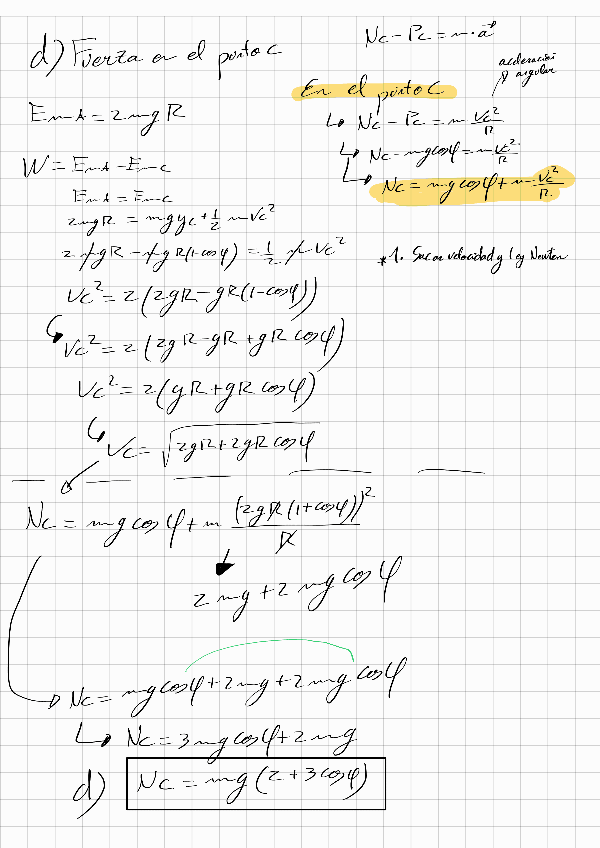 d) Fuerza en el punto C
Nc - Pc = m · a⃗
aceleración angular
En el punto C
↳ Nc - Pc = m Vc²/R
↳ Nc - mg cosφ = m Vc²/R
↳ Nc = mg cosφ + m · Vc²/R
*1. Sacar velocidad y ley Newton
EmA = 2mgR
W = EmA - Emc
EmA = Emc
2mgR = mgyc + 1/2 mVc²
2mgR - mgR(1-cosφ) = 1/2 mVc²
Vc² = 2(2gR - gR(1-cosφ))
↳ Vc² = 2(2gR - gR + gR cosφ)
Vc² = 2(gR + gR cosφ)
↳ Vc = √(2gR + 2gR cosφ)
Nc = mg cosφ + m (2gR(1+cosφ))²/R
2mg + 2mg cosφ
Nc = mg cosφ + 2mg + 2mg cosφ
↳ Nc = 3mg cosφ + 2mg
d) Nc = mg(2 + 3cosφ)